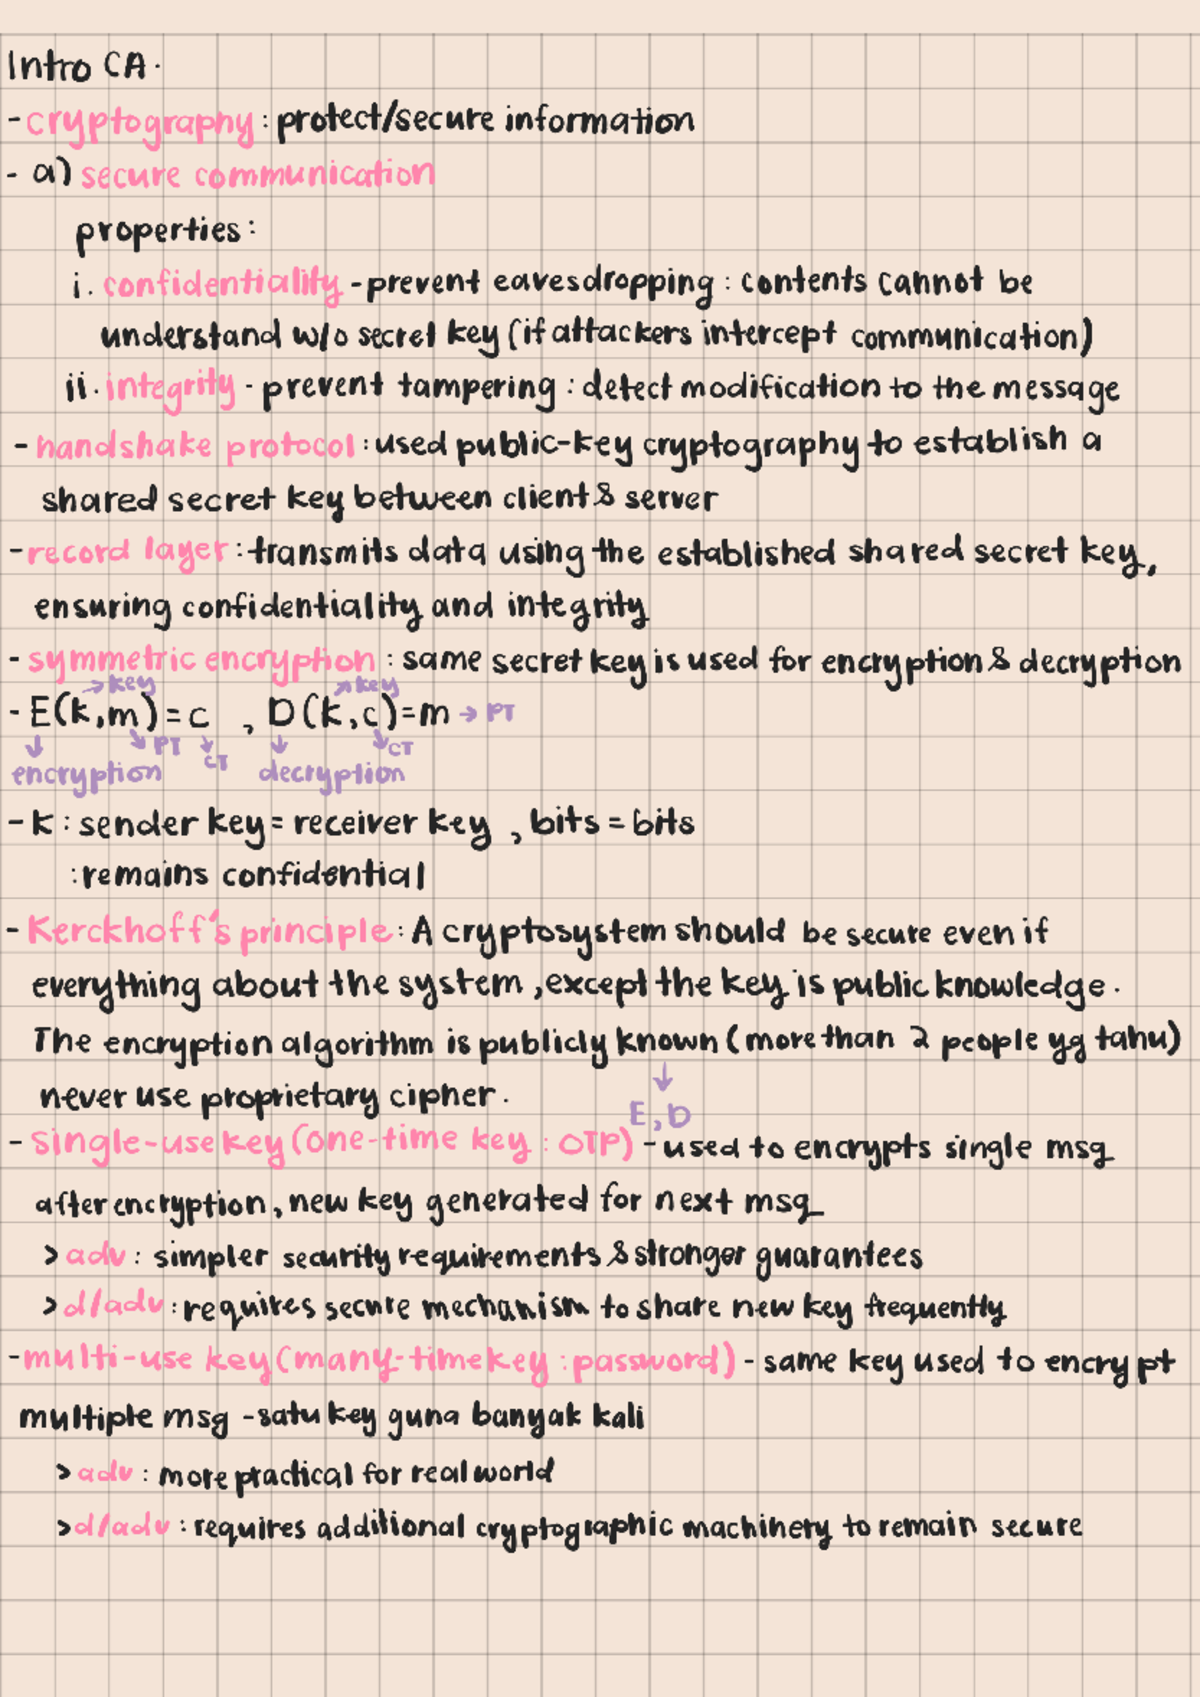 Intro CA.
- cryptography : protect/secure information
- a) secure communication
properties :
i. confidentiality - prevent eavesdropping : contents cannot be
understand w/o secret key (if attackers intercept communication)
ii. integrity - prevent tampering : detect modification to the message
- handshake protocol : used public-key cryptography to establish a
shared secret key between client & server
- record layer : transmits data using the established shared secret key,
ensuring confidentiality and integrity
- symmetric encryption : same secret key is used for encryption & decryption
→ key → key
- E(k,m) = c , D(k,c) = m → PT
↓ ↘ PT ↘ CT ↓ ↘ CT
encryption decryption
- k : sender key = receiver key , bits = bits
: remains confidential
- Kerckhoff's principle : A cryptosystem should be secure even if
everything about the system , except the key is public knowledge.
The encryption algorithm is publicly known (more than 2 people yg tahu)
↓
never use proprietary cipher.
E,D
- single-use key (one-time key : OTP) - used to encrypts single msg
after encryption, new key generated for next msg
> adv : simpler security requirements & stronger guarantees
> d/adv : requires secure mechanism to share new key frequently
- multi-use key (many-time key : password) - same key used to encrypt
multiple msg - satu key guna banyak kali
> adv : more practical for real world
> d/adv : requires additional cryptographic machinery to remain secure